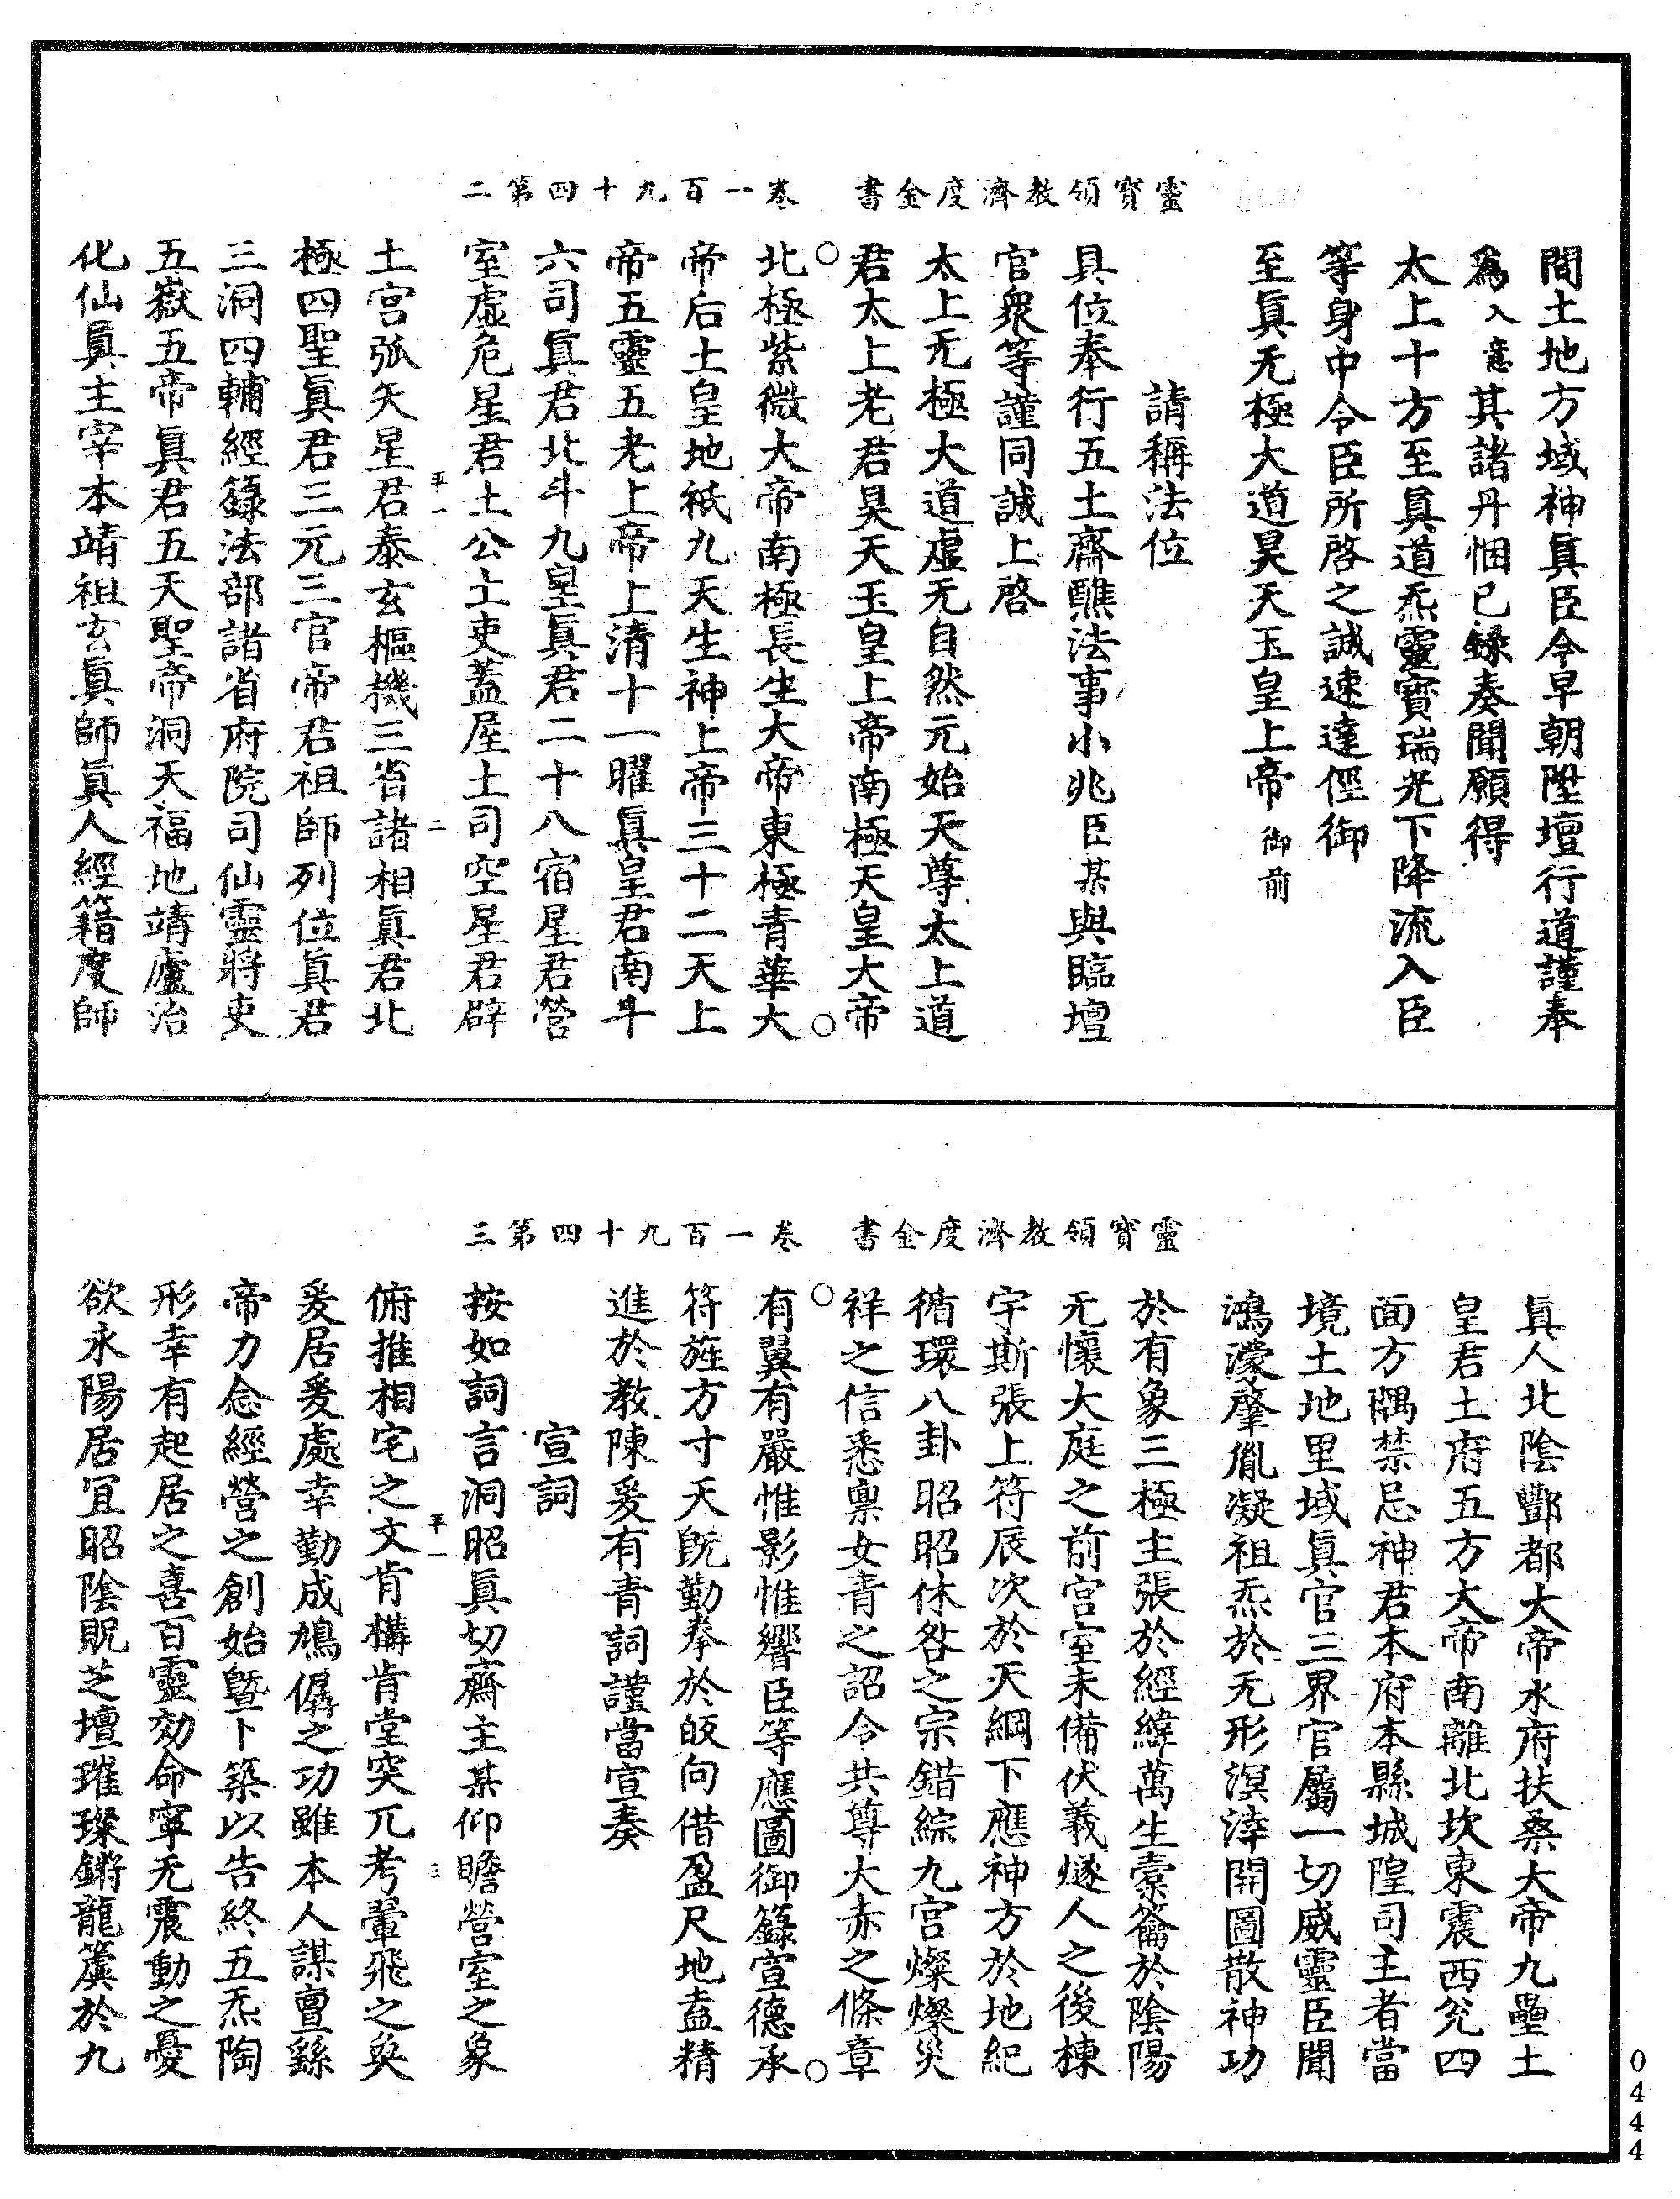 靈寶領教濟度金書　卷一百九十四第二
間土地方域神眞臣今早朝陞壇行道謹奉
爲入意其諸丹悃已錄奏聞願得
太上十方至眞道炁靈寶瑞光下降流入臣
等身中令臣所啓之誠速達徑御
至眞无極大道昊天玉皇上帝御前
請稱法位
具位奉行五土齋醮法事小兆臣某與臨壇
官衆等謹同誠上啓
太上无極大道虛无自然元始天尊太上道
君太上老君昊天玉皇上帝南極天皇大帝
北極紫微大帝南極長生大帝東極青華大
帝后土皇地祇九天生神上帝三十二天上
帝五靈五老上帝上清十一曜眞皇君南斗
六司眞君北斗九皇眞君二十八宿星君營
室虛危星君土公土吏蓋屋土司空星君辟
平一　二
土宫弧矢星君泰玄樞機三省諸相眞君北
極四聖眞君三元三官帝君祖師列位眞君
三洞四輔經籙法部諸省府院司仙靈將吏
五嶽五帝眞君五天聖帝洞天福地靖廬治
化仙眞主宰本靖祖玄眞師眞人經籍度師
靈寶領教濟度金書　卷一百九十四第三
眞人北陰酆都大帝水府扶桑大帝九壘土
皇君土府五方大帝南離北坎東震西兊四
面方隅禁忌神君本府本縣城隍司主者當
境土地里域眞官三界官屬一切威靈臣聞
鴻濛肇胤凝祖炁於无形溟涬開圖散神功
於有象三極主張於經緯萬生橐籥於陰陽
无懷大庭之前宫室未備伏羲燧人之後棟
宇斯張上符辰次於天綱下應神方於地紀
循環八卦昭昭休咎之宗錯綜九宫燦燦災
祥之信悉稟女青之詔令共尊大赤之條章
有翼有嚴惟影惟響臣等應圖御籙宣德承
符旌方寸天旣勤拳於皈向借盈尺地盍精
進於教陳爰有青詞謹當宣奏
宣詞
按如詞言洞昭眞切齋主某仰瞻營室之象
平一　三
俯推相宅之文肯構肯堂突兀考翬飛之奐
爰居爰處幸勤成鳩僝之功雖本人謀亶繇
帝力念經營之創始曁卜築以告終五炁陶
形幸有起居之喜百靈効命寧无震動之憂
欲永陽居宜昭陰貺芝壇璀璨鏘龍簴於九
0444